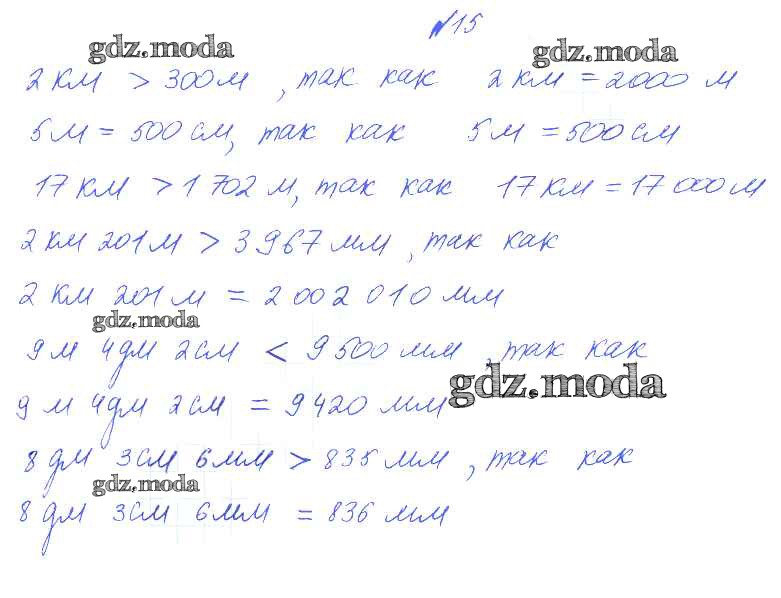 №15
gdz.moda gdz.moda
2 км > 300 м , так как 2 км = 2000 м
5 м = 500 см, так как 5 м = 500 см
17 км > 1 702 м, так как 17 км = 17 000 м
2 км 201 м > 3 967 мм , так как
2 км 201 м = 2 002 010 мм
gdz.moda
9 м 4 дм 2 см < 9 500 мм , так как
gdz.moda
9 м 4 дм 2 см = 9 420 мм
8 дм 3 см 6 мм > 835 мм , так как
gdz.moda
8 дм 3 см 6 мм = 836 мм